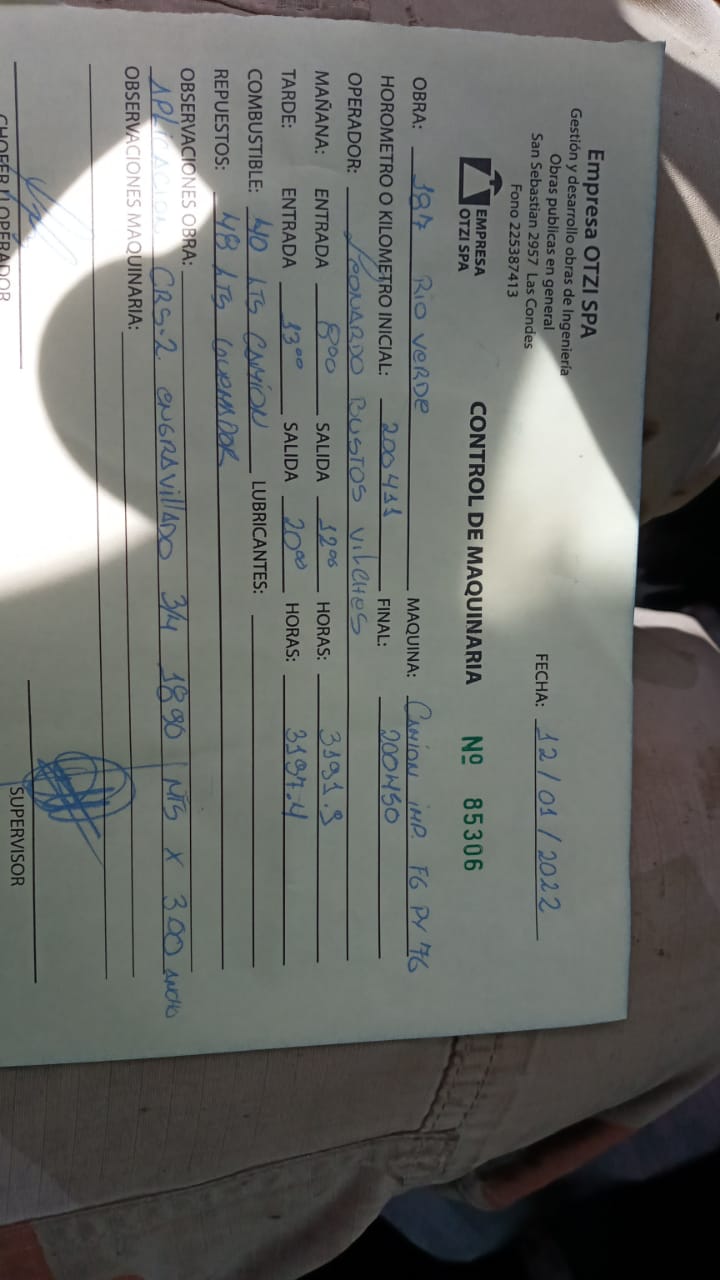 Empresa OTZI SPA
Gestión y desarrollo obras de Ingeniería
Obras publicas en general
San Sebastian 2957 Las Condes
Fono 225387413
EMPRESA
OTZI SPA
FECHA: 12/01/2022
CONTROL DE MAQUINARIA Nº 85306
OBRA: 187 RIO VERDE MAQUINA: CAMION IMP. FG PY 76
HOROMETRO O KILOMETRO INICIAL: 200411 FINAL: 200450
OPERADOR: LEONARDO BUSTOS VILCHES
MAÑANA: ENTRADA 8:00 SALIDA 12:00 HORAS: 3191.9
TARDE: ENTRADA 13:00 SALIDA 20:00 HORAS: 3197.4
COMBUSTIBLE: 40 LTS CAMION LUBRICANTES:
REPUESTOS: 48 LTS QUEMADOR
OBSERVACIONES OBRA:
APLICACION CRS-2. ENGRAVILLADO 3/4 1890 MTS X 3.00 ANCHO
OBSERVACIONES MAQUINARIA:
CHOFER U OPERADOR SUPERVISOR